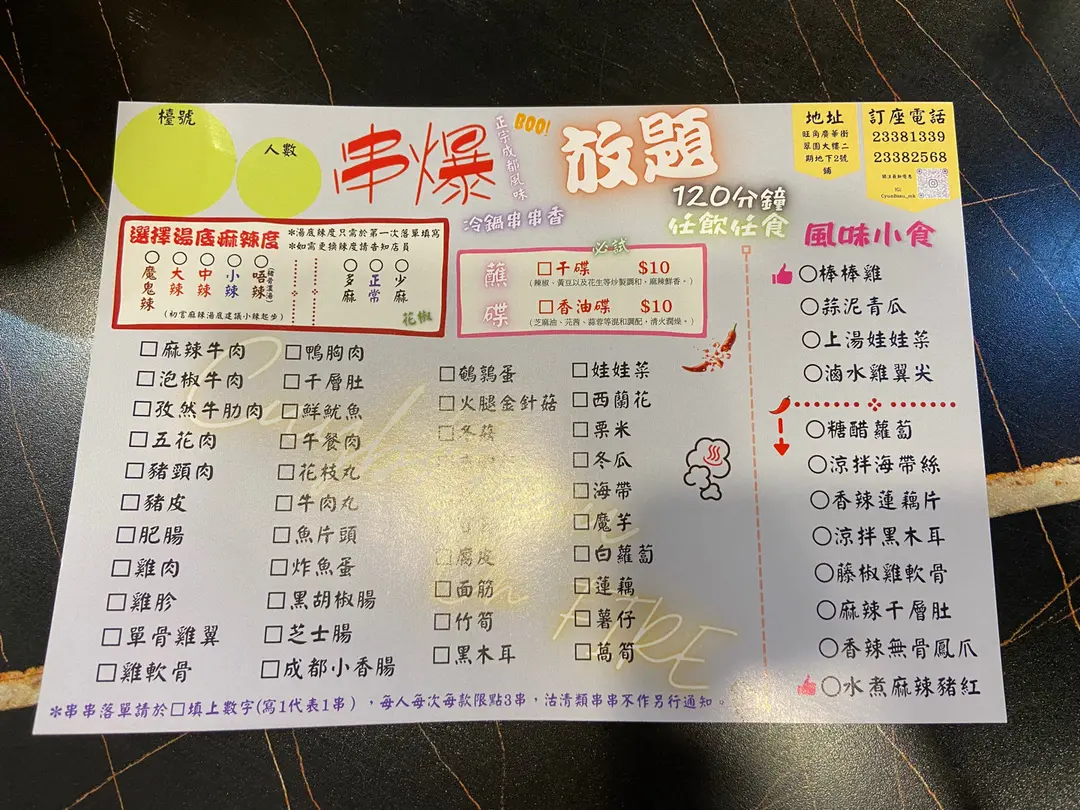 檯號
人數
串爆
正宗成都風味
BOO!
放題
120分鐘
任飲任食
冷鍋串串香
地址
旺角廣華街
翠園大樓二
期地下2號
舖
訂座電話
23381339
23382568
IG:
選擇湯底麻辣度
*湯底辣度只需於第一次落單填寫
*如需更換辣度請告知店員
○魔鬼辣
○大辣
○中辣
○小辣
○唔辣
○多麻
○正常
○少麻
(初嘗麻辣湯底建議小辣起步)
花椒
必試
蘸碟
□干碟 $10
(辣椒、黃豆以及花生等炒製調和。麻辣鮮香。)
□香油碟 $10
(芝麻油、花茜、蒜蓉等混和調配，清火潤燥。)
□麻辣牛肉
□泡椒牛肉
□孜然牛肋肉
□五花肉
□豬頸肉
□豬皮
□肥腸
□雞肉
□雞胗
□單骨雞翼
□雞軟骨
□鴨胸肉
□千層肚
□鮮魷魚
□午餐肉
□花枝丸
□牛肉丸
□魚片頭
□炸魚蛋
□黑胡椒腸
□芝士腸
□成都小香腸
□鵪鶉蛋
□火腿金針菇
□冬菇
□腐皮
□面筋
□竹筍
□黑木耳
□娃娃菜
□西蘭花
□粟米
□冬瓜
□海帶
□魔芋
□白蘿蔔
□蓮藕
□薯仔
□萵筍
風味小食
○棒棒雞
○蒜泥青瓜
○上湯娃娃菜
○滷水雞翼尖
○糖醋蘿蔔
○涼拌海帶絲
○香辣蓮藕片
○涼拌黑木耳
○藤椒雞軟骨
○麻辣千層肚
○香辣無骨鳳爪
○水煮麻辣豬紅
*串串落單請於□填上數字(寫1代表1串)，每人每次每款限點3串，沽清類串串不作另行通知。